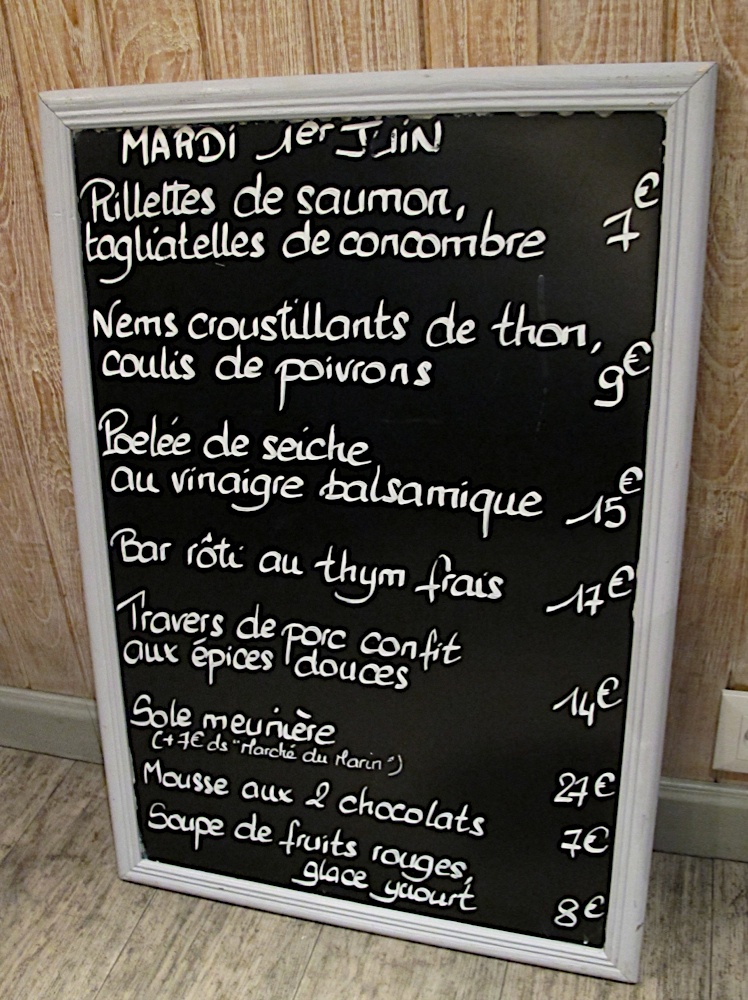 MARDI 1er JUIN
Rillettes de saumon,
tagliatelles de concombre 7€
Nems croustillants de thon,
coulis de poivrons 9€
Poelée de seiche
au vinaigre balsamique 15€
Bar rôti au thym frais 17€
Travers de porc confit
aux épices douces 14€
Sole meunière
(+7€ ds "Marché du Marin") 27€
Mousse aux 2 chocolats 7€
Soupe de fruits rouges,
glace yaourt 8€